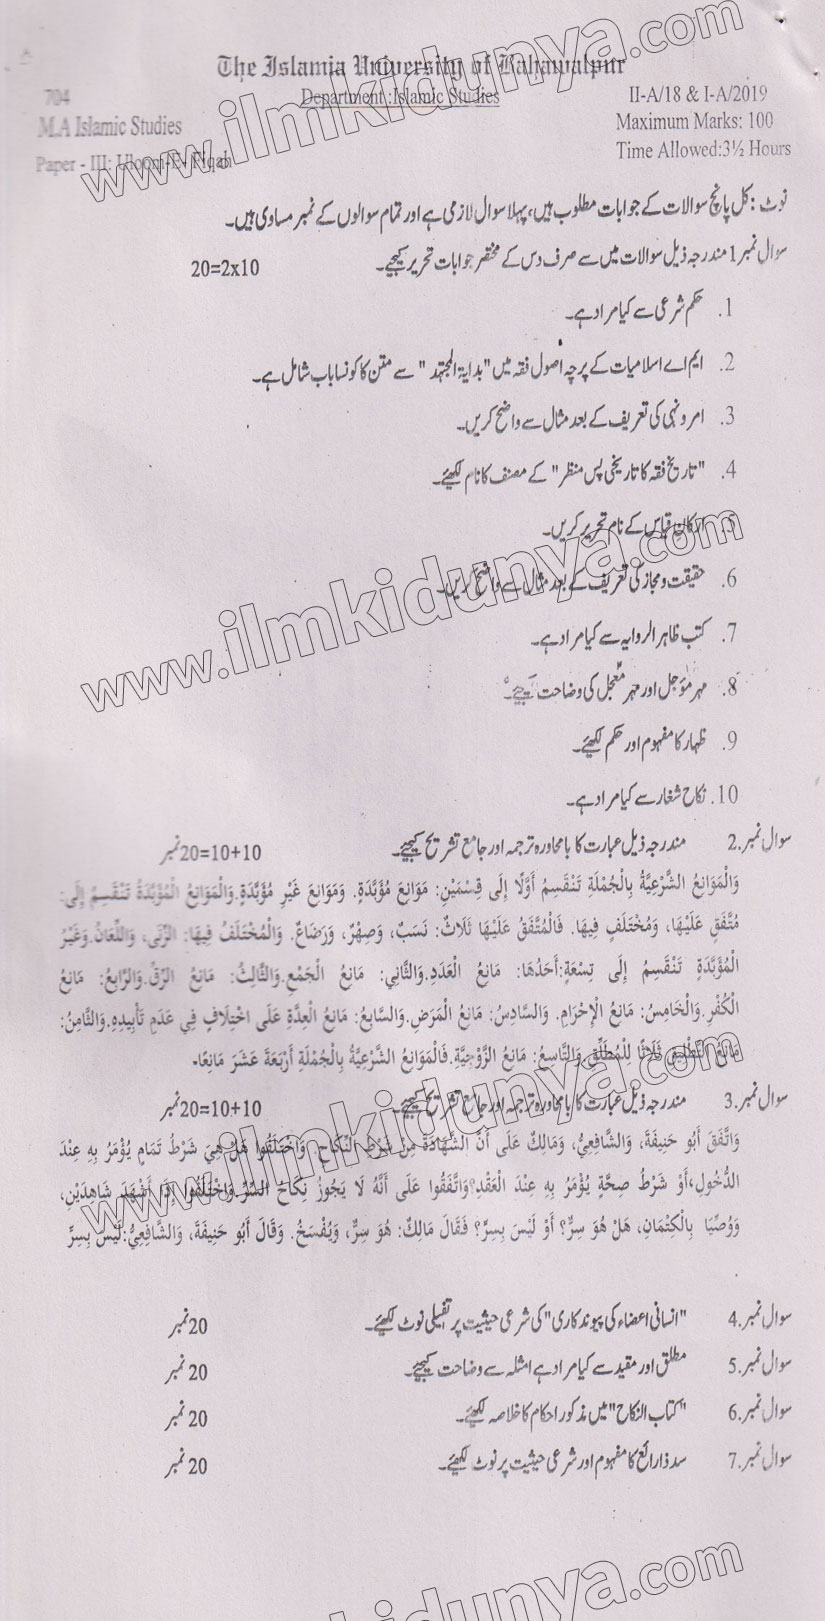 The Islamia University of Bahawalpur
704
Department :Islamic Studies
II-A/18 & I-A/2019
M.A Islamic Studies
Maximum Marks: 100
Paper - III: Uloom-E-Fiqah
Time Allowed:3½ Hours
نوٹ: کل پانچ سوالات کے جوابات مطلوب ہیں، پہلا سوال لازمی ہے اور تمام سوالوں کے نمبر مساوی ہیں۔
سوال نمبر1 مندرجہ ذیل سوالات میں سے صرف دس کے مختصر جوابات تحریر کیجیے۔ 20=2x10
1. حکم شرعی سے کیا مراد ہے۔
2. ایم اے اسلامیات کے پرچہ اُصول فقہ میں "بدایۃ المجتہد" سے متن کا کونسا باب شامل ہے۔
3. امر ونہی کی تعریف کے بعد مثال سے واضح کریں۔
4. "تاریخ فقہ کا تاریخی پس منظر" کے مصنف کا نام لکھیئے۔
5. ارکان قیاس کے نام تحریر کریں۔
6. حقیقت و مجاز کی تعریف کے بعد مثال سے واضح کریں۔
7. کتب ظاہر الروایہ سے کیا مراد ہے۔
8. مہر مؤجل اور مہر معجل کی وضاحت کیجیے۔
9. ظہار کا مفہوم اور حکم لکھیئے۔
10. نکاح شغار سے کیا مراد ہے۔
سوال نمبر.2 مندرجہ ذیل عبارت کا بامحاورہ ترجمہ اور جامع تشریح کیجیے۔ 20=10+10 نمبر
وَالْمَوَانِعُ الشَّرْعِيَّةُ بِالْجُمْلَةِ تَنْقَسِمُ أَوَّلًا إِلَى قِسْمَيْنِ: مَوَانِعَ مُؤَبَّدَةٍ. وَمَوَانِعَ غَيْرِ مُؤَبَّدَةٍ.وَالْمَوَانِعُ الْمُؤَبَّدَةُ تَنْقَسِمُ إِلَى:
مُتَّفَقٍ عَلَيْهَا، وَمُخْتَلَفٍ فِيهَا. فَالْمُتَّفَقُ عَلَيْهَا ثَلَاثٌ: نَسَبٌ، وَصِهْرٌ، وَرَضَاعٌ. وَالْمُخْتَلَفُ فِيهَا: الزِّنَى، وَاللِّعَانُ.وَغَيْرُ
الْمُؤَبَّدَةِ تَنْقَسِمُ إِلَى تِسْعَةٍ:أَحَدُهَا: مَانِعُ الْعَدَدِ.وَالثَّانِي: مَانِعُ الْجَمْعِ.وَالثَّالِثُ: مَانِعُ الرِّقِّ.وَالرَّابِعُ: مَانِعُ
الْكُفْرِ.وَالْخَامِسُ: مَانِعُ الْإِحْرَامِ. وَالسَّادِسُ: مَانِعُ الْمَرَضِ.وَالسَّابِعُ: مَانِعُ الْعِدَّةِ عَلَى اخْتِلَافٍ فِي عَدَمِ تَأْبِيدِهِ.وَالثَّامِنُ:
مَانِعُ التَّطْلِيقِ ثَلَاثًا لِلْمُطَلِّقِ.وَالتَّاسِعُ: مَانِعُ الزَّوْجِيَّةِ.فَالْمَوَانِعُ الشَّرْعِيَّةُ بِالْجُمْلَةِ أَرْبَعَةَ عَشَرَ مَانِعًا-
سوال نمبر.3 مندرجہ ذیل عبارت کا بامحاورہ ترجمہ اور جامع تشریح کیجیے۔ 20=10+10 نمبر
وَاتَّفَقَ أَبُو حَنِيفَةَ، وَالشَّافِعِيُّ، وَمَالِكٌ عَلَى أَنَّ الشَّهَادَةَ مِنْ شَرْطِ النِّكَاحِ. وَاخْتَلَفُوا هَلْ هِيَ شَرْطُ تَمَامٍ يُؤْمَرُ بِهِ عِنْدَ
الدُّخُولِ،أَوْ شَرْطُ صِحَّةٍ يُؤْمَرُ بِهِ عِنْدَ الْعَقْدِ؟وَاتَّفَقُوا عَلَى أَنَّهُ لَا يَجُوزُ نِكَاحُ السِّرِّ.وَاخْتَلَفُوا إِذَا أَشْهَدَ شَاهِدَيْنِ،
وَوُصِّيَا بِالْكِتْمَانِ، هَلْ هُوَ سِرٌّ؟ أَوْ لَيْسَ بِسِرٍّ؟ فَقَالَ مَالِكٌ: هُوَ سِرٌّ، وَيُفْسَخُ. وَقَالَ أَبُو حَنِيفَةَ، وَالشَّافِعِيُّ:لَيْسَ بِسِرٍّ
سوال نمبر.4 "انسانی اعضاء کی پیوند کاری" کی شرعی حیثیت پر تفصیلی نوٹ لکھیئے۔ 20 نمبر
سوال نمبر.5 مطلق اور مقید سے کیا مراد ہے امثلہ سے وضاحت کیجیے۔ 20 نمبر
سوال نمبر.6 "کتاب النکاح" میں مذکور احکام کا خلاصہ لکھیئے۔ 20 نمبر
سوال نمبر.7 سد ذرائع کا مفہوم اور شرعی حیثیت پر نوٹ لکھیئے۔ 20 نمبر
www.ilmkidunya.com
www.ilmkidunya.com
www.ilmkidunya.com
kidunya.com